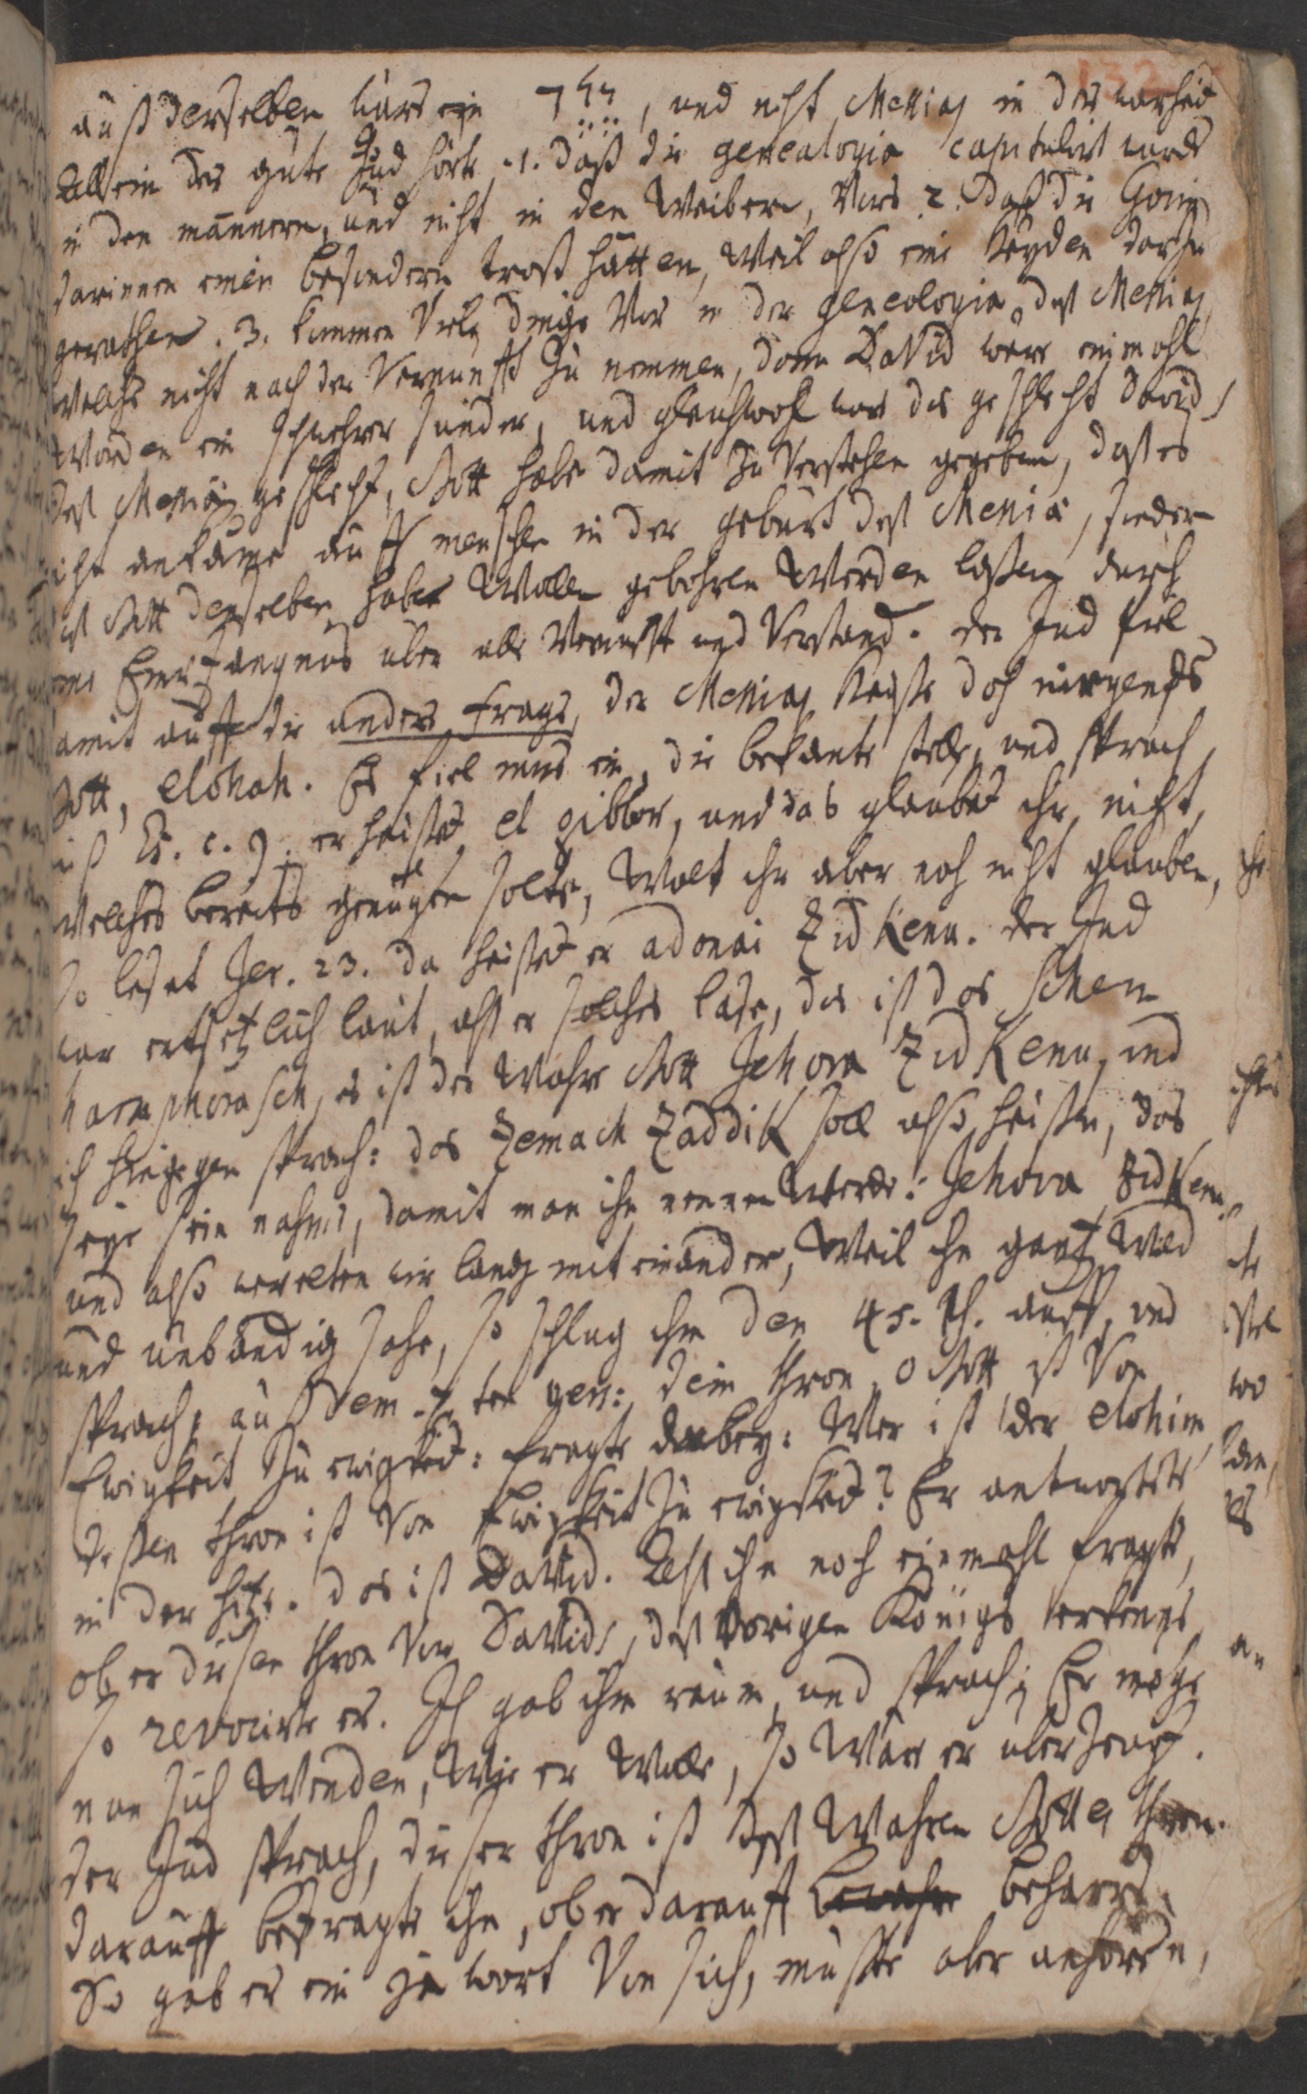 132
auß derselben kam ein , und nicht Messias in der warheit
Allein der gute Jud hörte .1. daß die genealogia capitulirt werde
in den mannern, und nicht in den Weibern, Vors 2. daß die Goim
darinnen einen besondern trost hätten, Weil also eine Heyden darzu
gerathen. 3. kommen viele dinge Vor in der geneologia deß Messias
welche nicht nach der Vernunfft zu nemmen, dann David were einmahl
worden ein schwehrer sünder, und gleichwohl war das geschlecht Davids
deß Messiä geschlecht, Gott habe damit zu verstehen gegeben, daß es
nicht ankäme auff menschen in der geburt deß Messiä, sondern
Gott denselben habe Wollen gebohren Werden laßen durch
eine Empfängnus über alle Vernunfft und Verstand. der Jud fiel
damit auff die andere frage, der Messias heiße doch nirgends
Gott, elohah. Es fiel mir ein, die bekante stelle, und sprach
auß Es. c. 9. er heißet el gibbor, und das glaubet ihr nicht,
Welches bereits genügen solte, Wolt ihr aber noch nicht glauben,
so leset Jer. 23. da heißet er adonai Zidkenu. der Jud
war entsetzlich laut, alß er solches lase, das ist das schem
hamphorasch, es ist der Wahre Gott Jehova Zidkenu, und
ich hingegen sprach: das Zemach Zaddik soll also heißen, das
seye sein nahme, damit man ihn nennen Werde: Jehova Zidkenu
und also walten wir lang mit einander, Weil ihn gantz Wild
und unbändig sahe, so schlug ihm den 45. Ps. auff, und
sprach, auß dem 7. ten vers: dein thron o Gott ist Von
Ewigkeit zu ewigkeit: fragte dabey: Wer ist der elohim,
deßen thron ist Von Ewigkeit zu ewigkeit? Er antwortete
in der hitze. das ist David. Alß ihn noch einmahl fragte,
ob er diesen thron Vor Davids, deß vorigen Königs erkenne,
so revocirte er. Ich gab ihm raum, und sprach; Er möge
nun sich Wenden, Wie er Wolle, so Wäre er überzeugt.
der Jud sprach, dieser thron ist deß Wahren Gottes thron.
darauff befragte ihn, ob er darauff beharre.
So gab er ein ja wort Von sich, muste aber anhören,